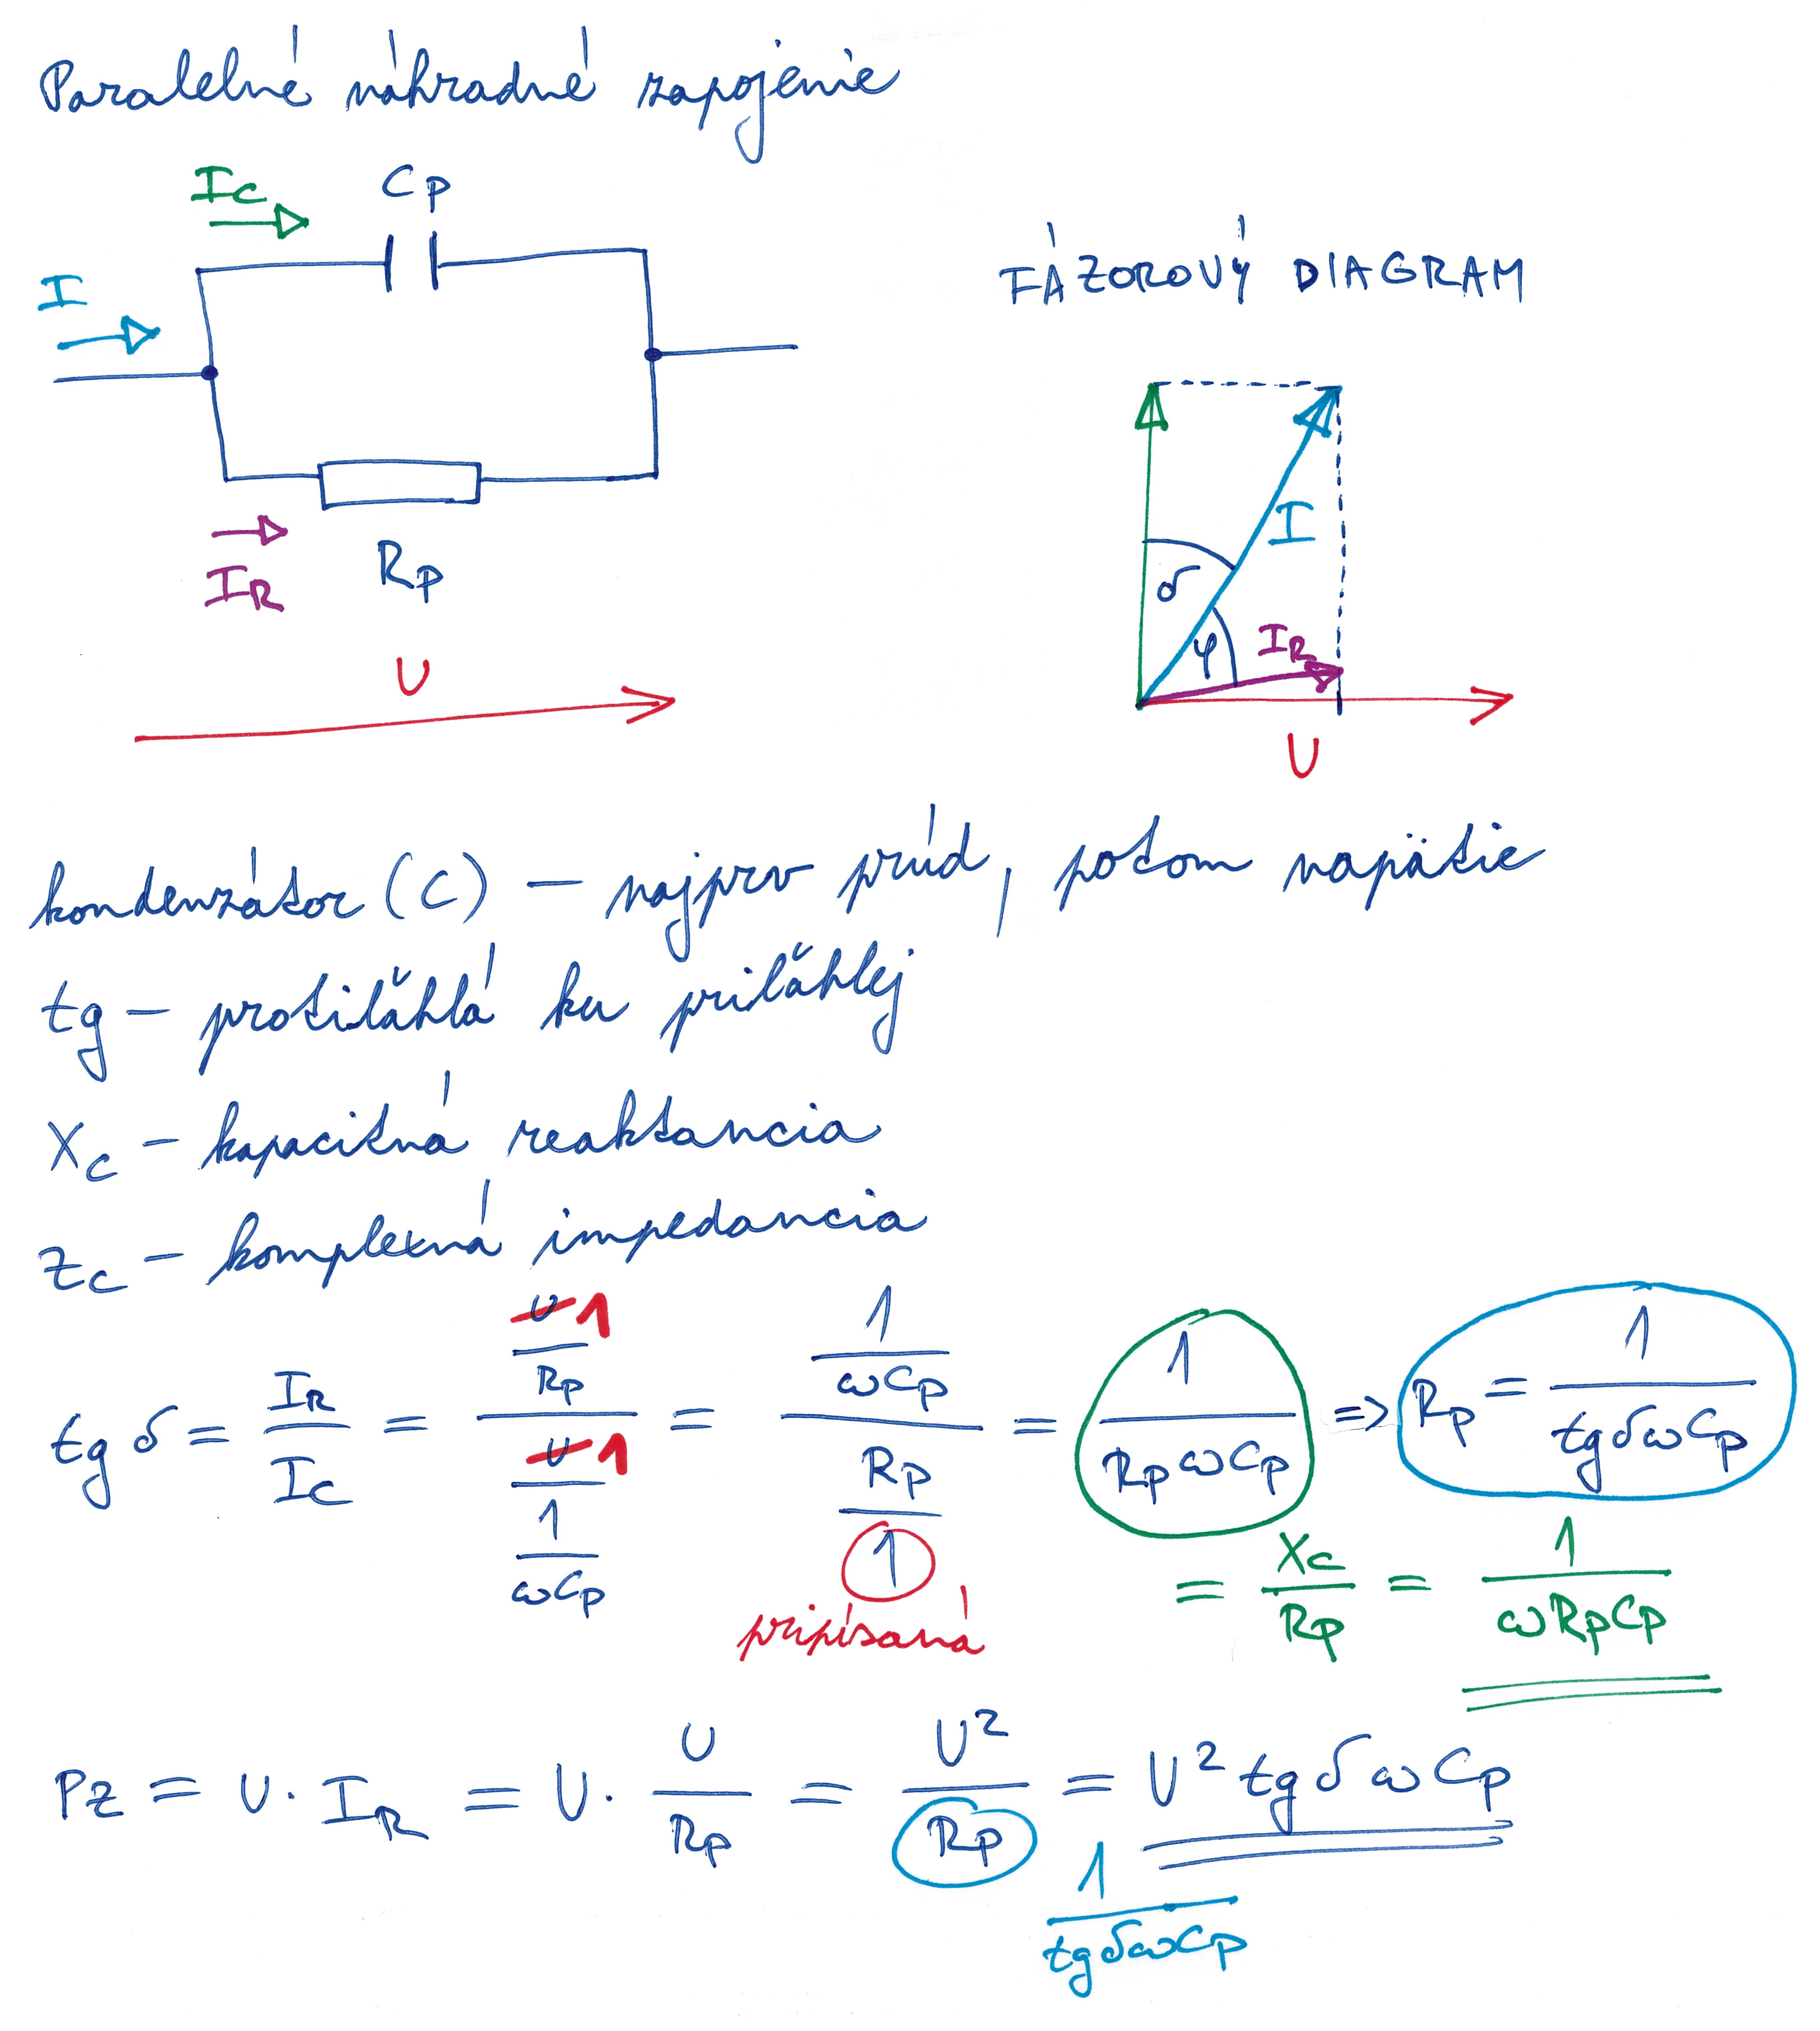 Paralelné náhradné zapojenie
I_C
C_P
I
I_R
R_P
U
FÁZOROVÝ DIAGRAM
I
δ
φ
I_R
U
kondenzátor (C) – najprv prúd, potom napätie
tg – protiľahlá ku priľahlej
X_C – kapacitná reaktancia
Z_C – komplexná impedancia
tg δ = I_R / I_C = (U 1 / R_P) / (U 1 / (1 / ωC_P)) = (1 / ωC_P) / (R_P / 1) = 1 / R_P ωC_P => R_P = 1 / tg δ ω C_P
pripísaná
= X_C / R_P = 1 / ωR_P C_P
P_Z = U · I_R = U · U / R_P = U² / R_P = U² tg δ ω C_P
1 / tg δ ω C_P